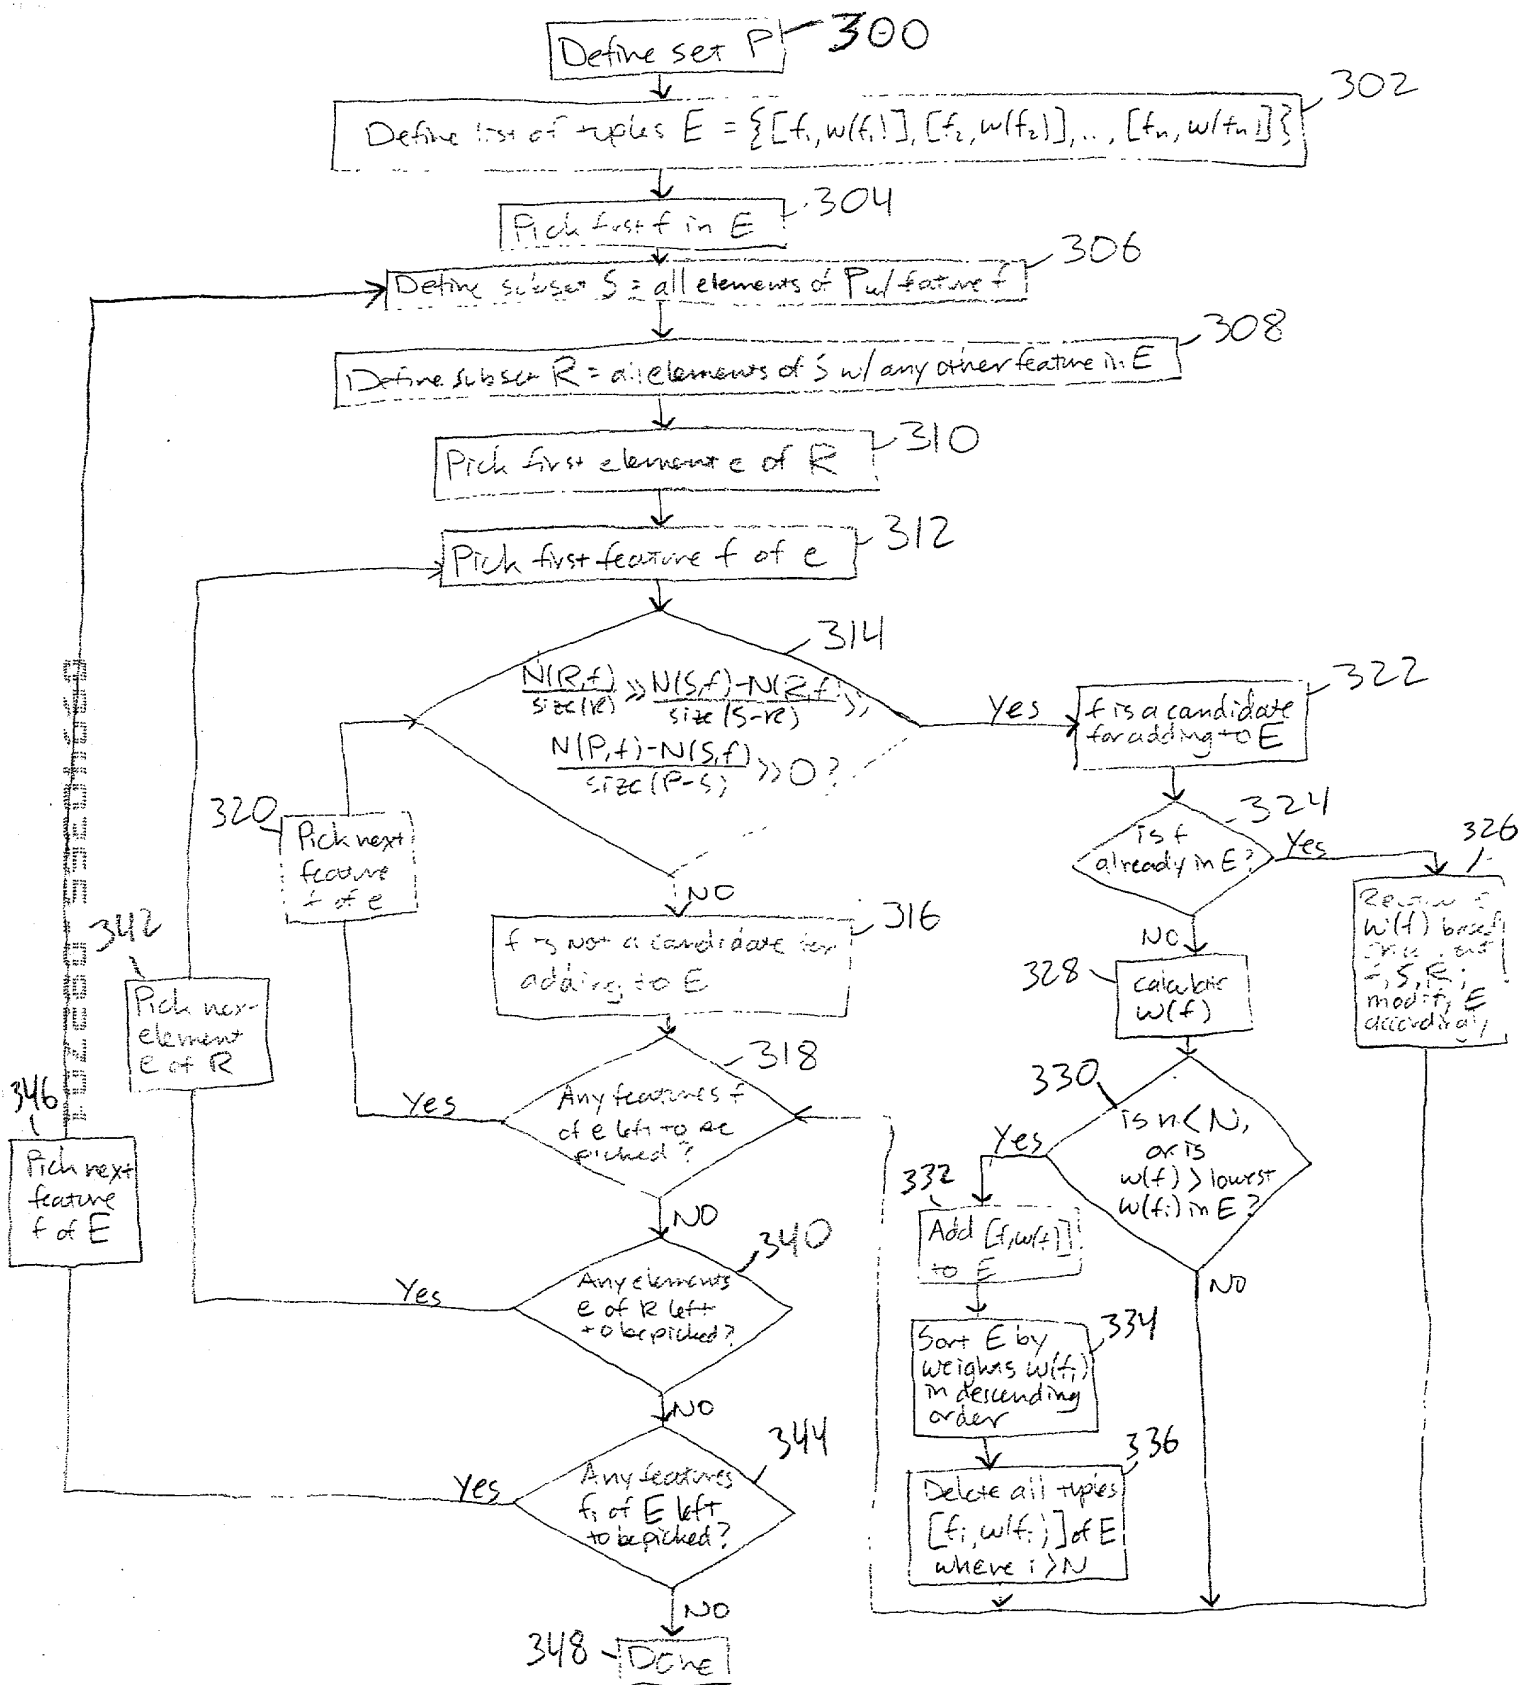 Define set P
300
Define list of tuples E = {[f₁, w(f₁)], [f₂, w(f₂)], .., [fₙ, w(fₙ)]}
302
Pick first f in E
304
Define subset S = all elements of P w/ feature f
306
Define subset R = all elements of S w/ any other feature in E
308
Pick first element e of R
310
Pick first feature f of e
312
314
N(R,f)/size(R) >> N(S,f)-N(R,f)/size(S-R) >>
N(P,f)-N(S,f)/size(P-S) >> 0?
Yes
322
f is a candidate
for adding to E
324
is f
already in E?
Yes
326
w(f) based
f, S, R;
modify E
accordingly
NO
328
calculate
w(f)
330
is n < N,
or is
w(f) > lowest
w(fᵢ) in E?
Yes
NO
332
Add [f, w(f)]
to E
334
Sort E by
weights w(fᵢ)
in descending
order
336
Delete all tuples
[fᵢ, w(fᵢ)] of E
where i > N
NO
316
f is not a candidate for
adding to E
318
Any features f
of e left to be
picked?
Yes
320
Pick next
feature
f of e
NO
340
Any elements
e of R left
to be picked?
Yes
342
Pick next
element
e of R
NO
344
Any features
fᵢ of E left
to be picked?
Yes
346
Pick next
feature
f of E
NO
348
Done